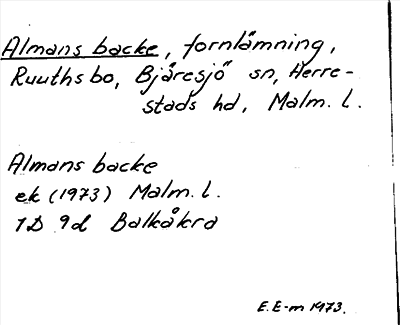 Almans backe, fornlämning,
Ruuthsbo, Bjäresjö sn, Herre-
stads hd, Malm. l.
Almans backe
ek (1973) Malm. l.
1D 9d Balkåkra
E. E-m 1973.